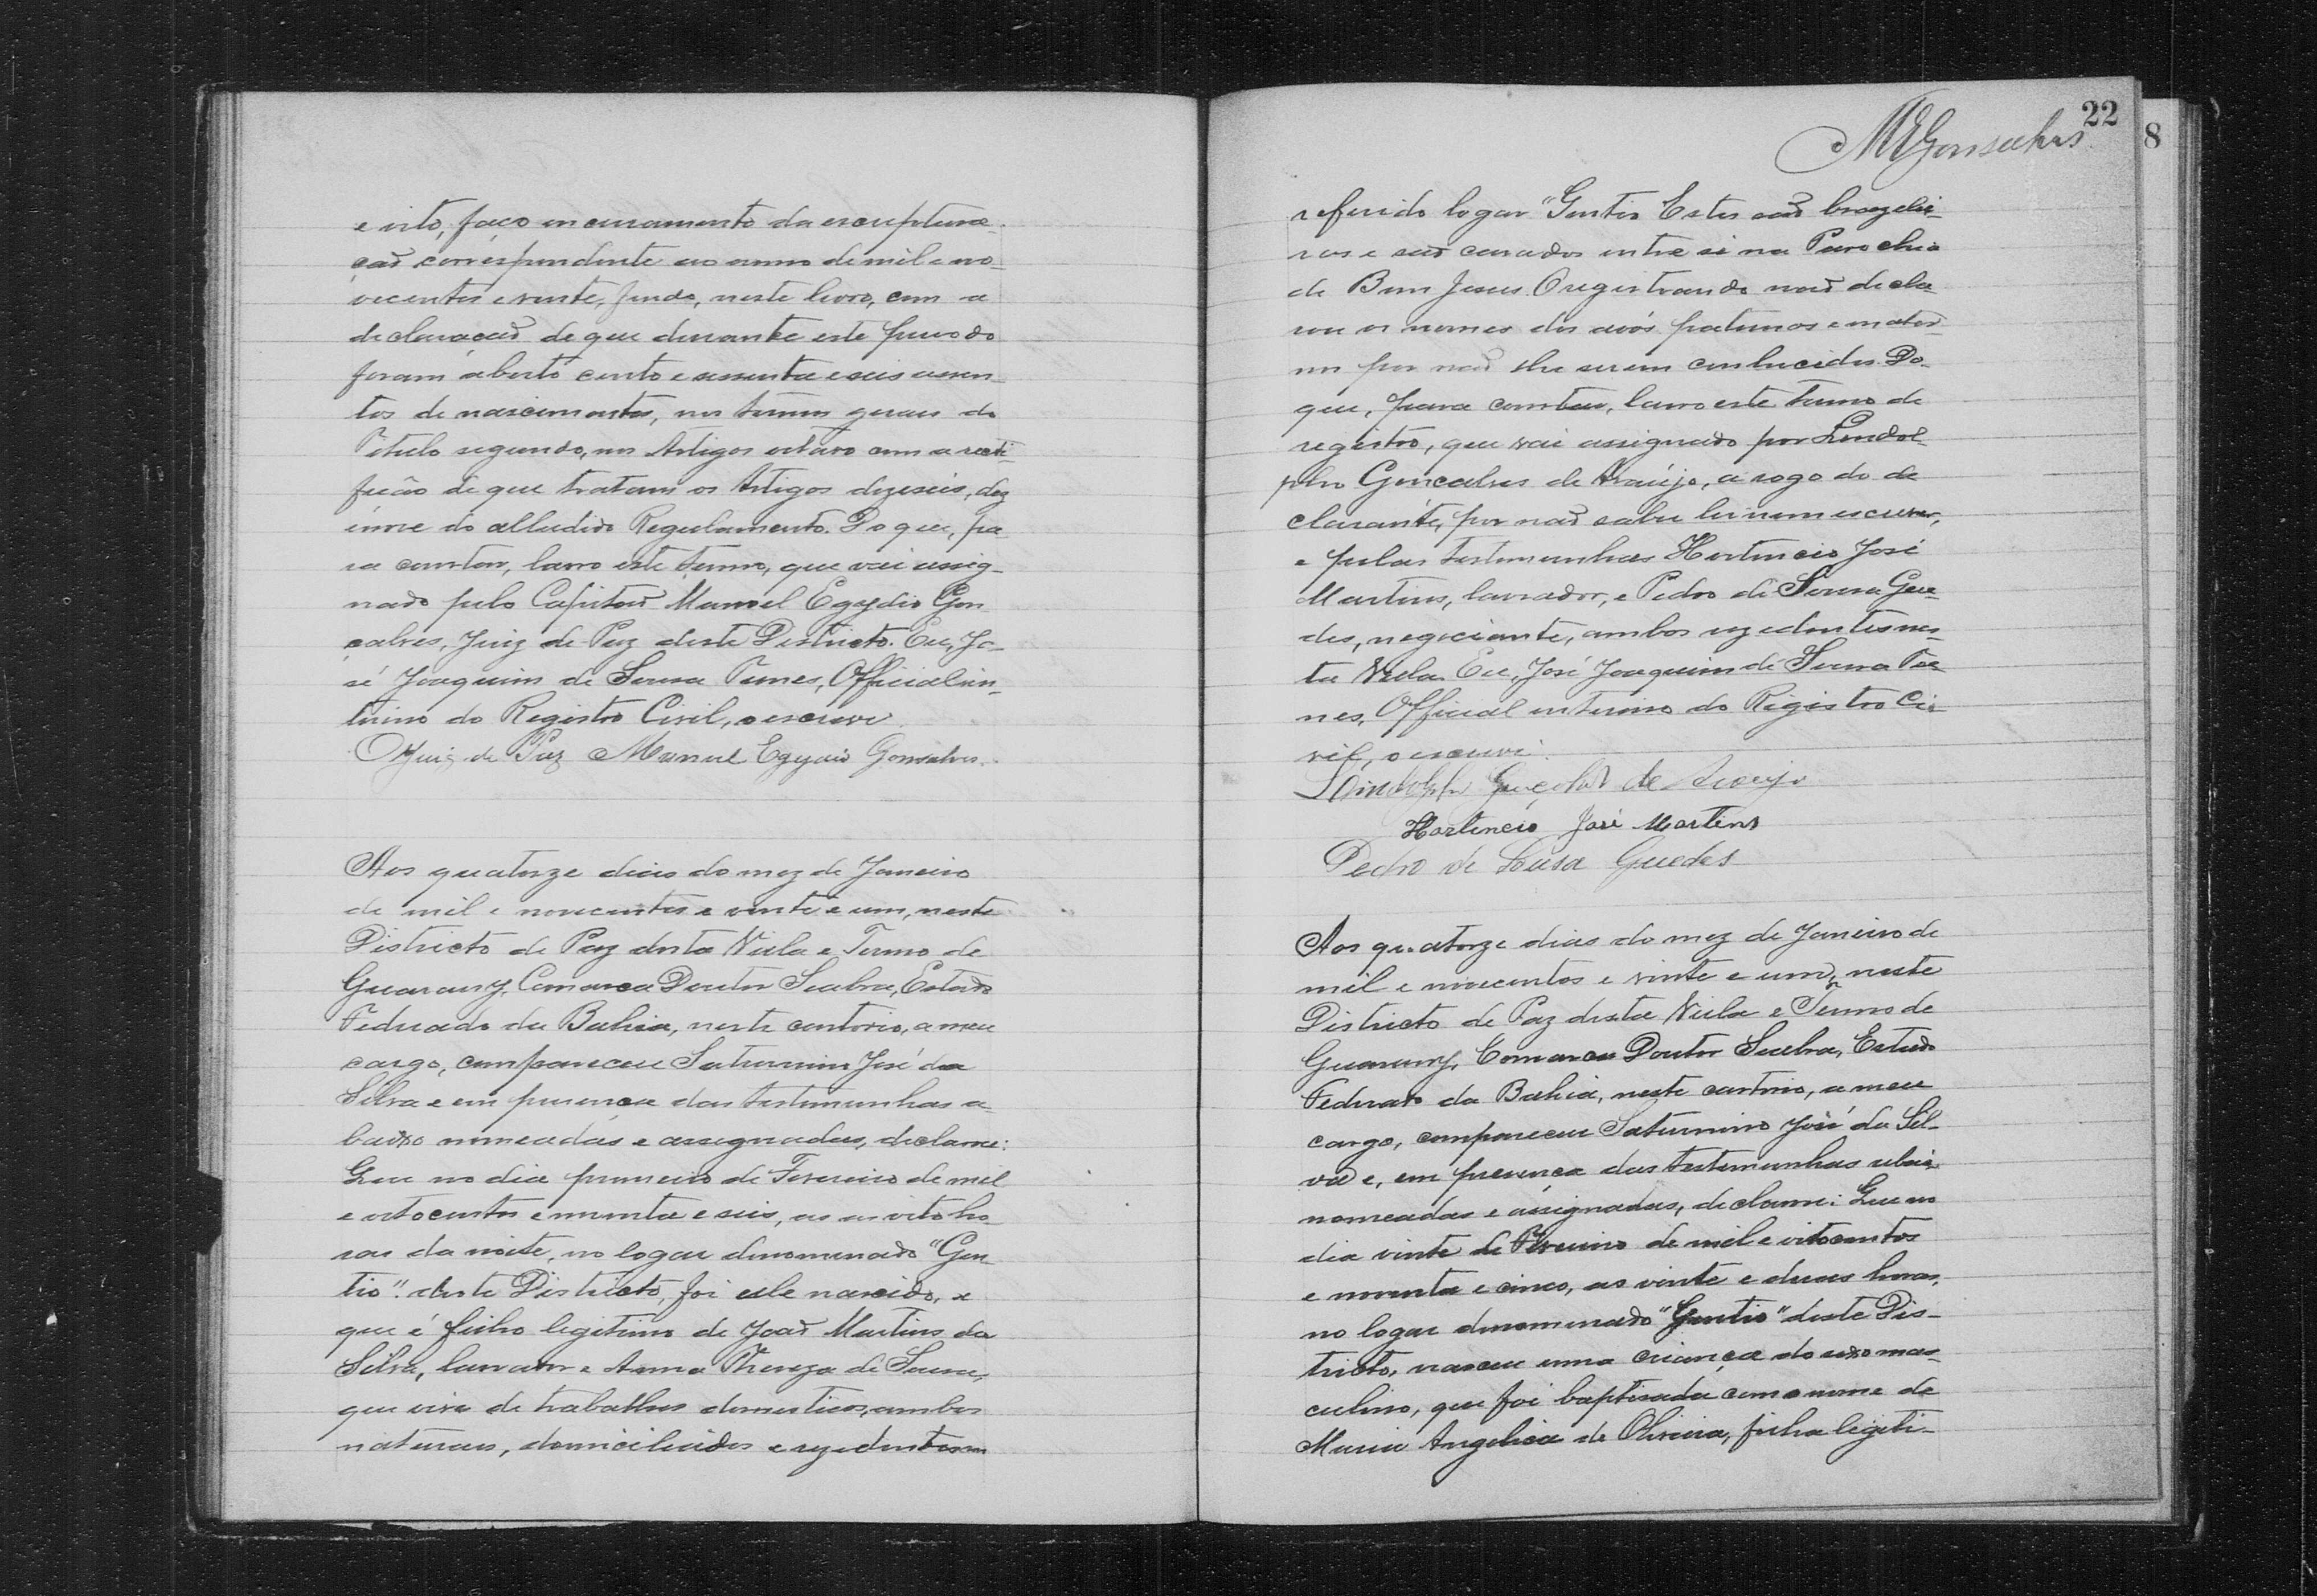 e oito, faço encerramento da escriptura-
ção correspondente ao anno de mil e no-
vecentos e vinte, findo, neste livro, com a
declaração de que durante este periodo
foram aberto cento e sessenta e seis assen-
tos de nascimentos, nos termos geraes do
Titulo segundo, nos Artigos oitavo com a recti-
ficão de que tratam os Artigos dezeseis, dez
enove do alludido Regulamento. Do que, pa
ra constar, lavro este termo, que vai assig-
nado pelo Capitão Manoel Egydio Gon
çalves, Juiz de Paz deste Districto. Eu, Jo-
sé Joaquim de Sousa Tunes, Official in-
terino do Registro Civil, o escrevi
O Juiz de Paz Manuel Egydio Gonsalves.
Aos quatorze dias do mez de Janeiro
de mil e novecentos e vinte e um, neste
Districto de Paz desta Villa e Termo de
Guarany, Comarca Doutor Seabra, Estado
Federado da Bahia, neste cartorio, a meu
cargo, compareceu Saturnino José da
Silva e em presença das testemunhas a-
baixo nomeadas e assignadas, declarou:
Que no dia primeiro de Fevereiro de mil
e oitocentos e noventa e seis, as oito ho-
ras da noite, no logar denominado "Gen
tio" deste Districto, foi elle nascido, e
que é filho legitimo de João Martins da
Silva, lavrador e Anna Thereza de Sousa,
que vive de trabalhos domesticos, ambos
naturaes, domiciliados e rezidentes no
22
8
MEGonsalves
referido logar "Gentio Estes são brazilei-
ros e são casados entre si na Parochia
de Bom Jesus. O registrando não decla-
rou os nomes dos avós paternos e mater-
nos por não lhe serem conhecidos. Do
que, para constar, lavro este termo de
registro, que vai assignado por Lindol-
pho Gonçalves de Araújo, a rogo do de
clarante, por não saber ler nem escrever,
e pelas testemunhas Hortencio José
Martins, lavrador, e Pedro de Sousa Gue-
des, negociante, ambos rezidentes nes-
ta Villa. Eu, José Joaquim de Sousa Tu-
nes, Official interino do Registro Ci-
vil, o escrevi.
Lindolpho Gonçalves de Araujo
Hortencio José Martins
Pedro de Sousa Guedes
Aos quatorze dias do mez de Janeiro de
mil e novecentos e vinte e um, neste
Districto de Paz desta Villa e Termo de
Guarany, Comarca Doutor Seabra, Estado
Federado da Bahia, neste cartorio, a meu
cargo, compareceu Saturnino José da Sil-
va e, em presença das testemunhas abaixo
nomeadas e assignadas, declarou: Que no
dia vinte de Fevereiro de mil e oitocentos
e noventa e cinco, as vinte e duas horas,
no logar denominado "Gentio" deste Dis-
tricto, nasceu uma criança do sexo mas-
culino, que foi baptisada com o nome de
Maria Angelica de Oliveira, filha legiti-